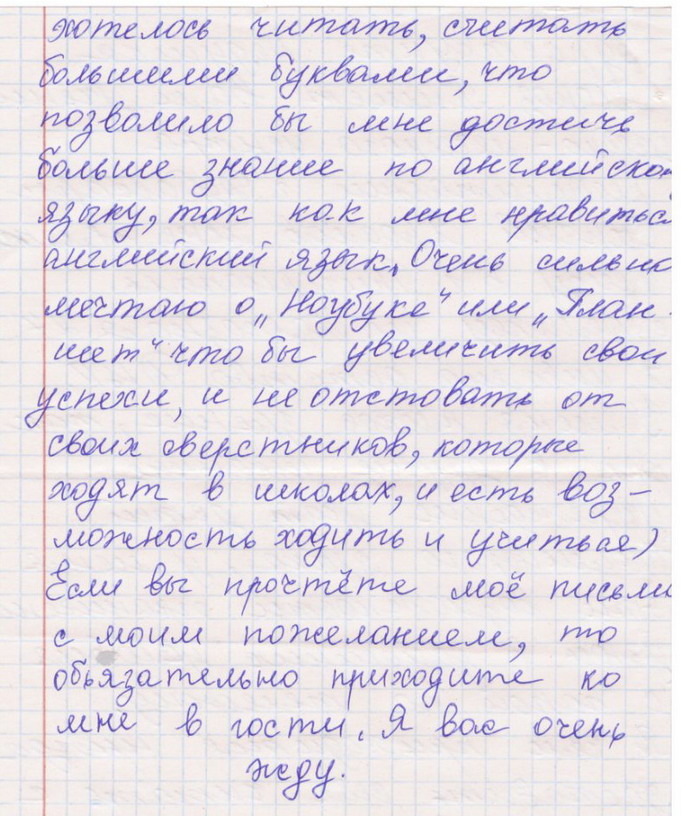 хотелось читать, считать
большими буквами, что
позволило бы мне достичь
больше знание по английско
языку, так как мне нравиться
английский язык. Очень сильно
мечтаю о „Ноубуке" или „План
шет" что бы увеличить свои
успехи, и не отстовать от
своих сверстников, которые
ходят в школах, и есть воз-
можность ходить и учиться)
Если вы прочтёте моё письмо
с моим пожеланием, то
обьязательно приходите ко
мне в гости. Я вас очень
жду.